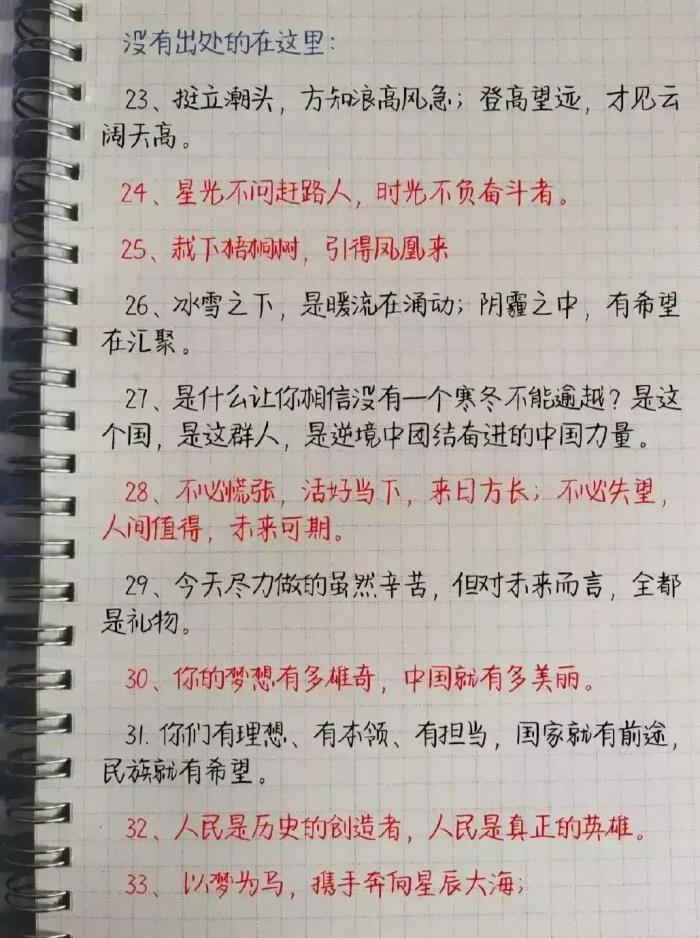 没有出处的在这里:
23、挺立潮头，方知浪高风急；登高望远，才见云
阔天高。
24、星光不问赶路人，时光不负奋斗者。
25、栽下梧桐树，引得凤凰来
26、冰雪之下，是暖流在涌动；阴霾之中，有希望
在汇聚。
27、是什么让你相信没有一个寒冬不能逾越？是这
个国，是这群人，是逆境中团结奋进的中国力量。
28、不必慌张，活好当下，来日方长；不必失望，
人间值得，未来可期。
29、今天尽力做的虽然辛苦，但对未来而言，全都
是礼物。
30、你的梦想有多雄奇，中国就有多美丽。
31.你们有理想、有本领、有担当，国家就有前途，
民族就有希望。
32、人民是历史的创造者，人民是真正的英雄。
33、以梦为马，携手奔向星辰大海；